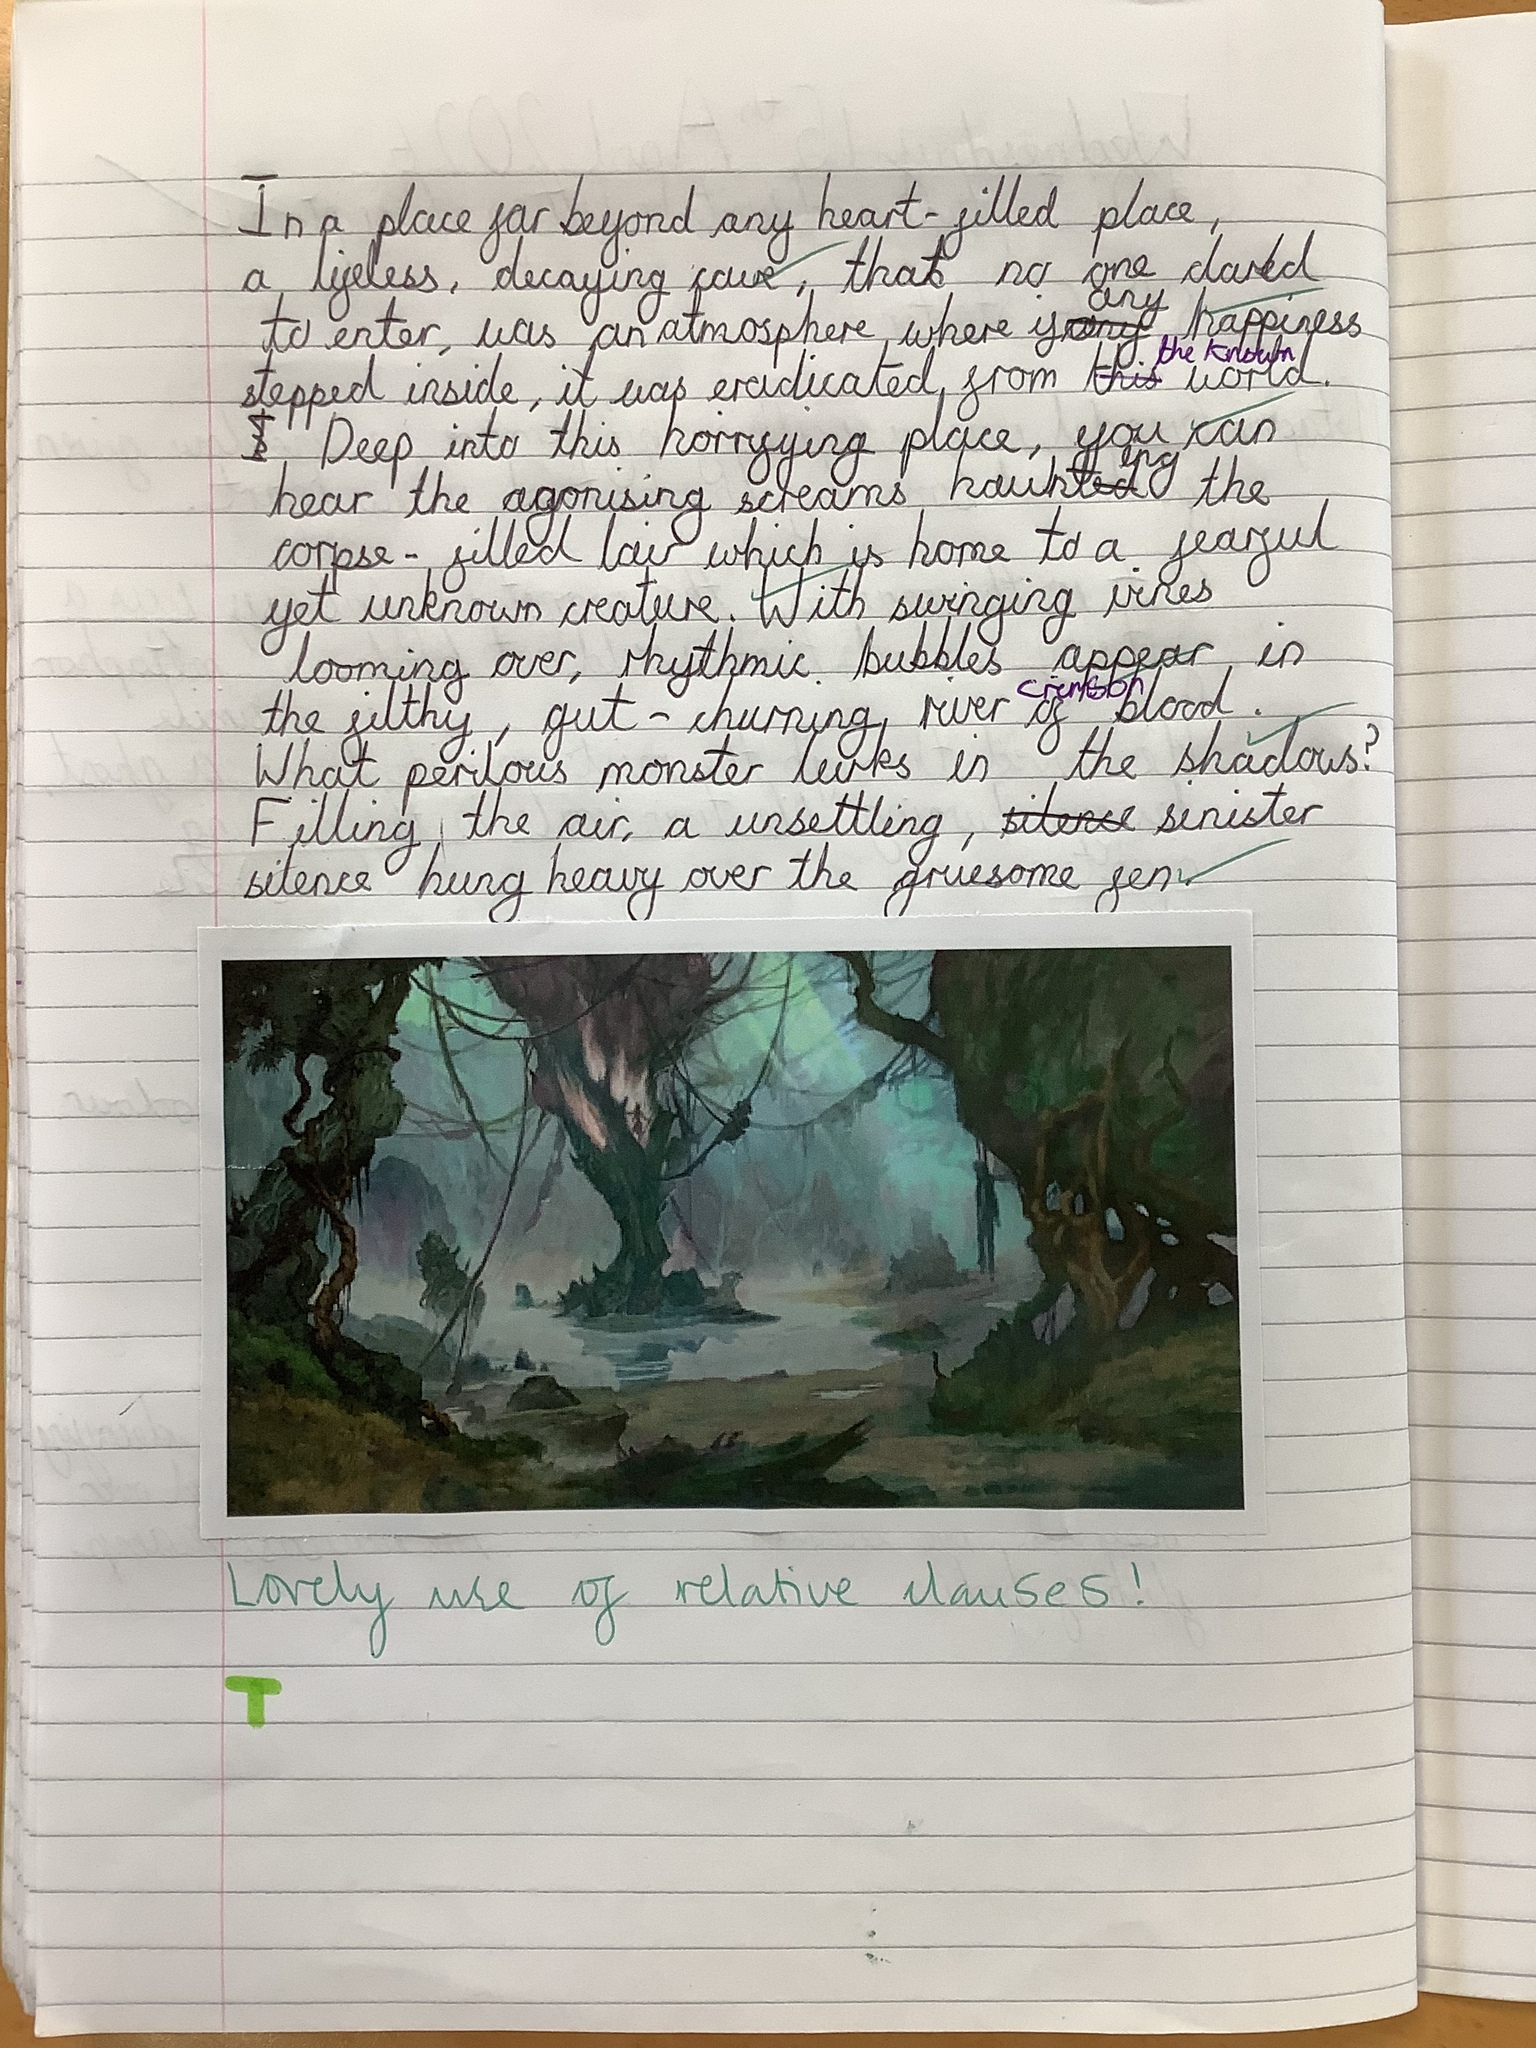 In a place far beyond any heart-filled place,
a lifeless, decaying cave, that no one dared
to enter, was an atmosphere where if any happiness
stepped inside, it was eradicated from the known world.
Deep into this horryfying place, you can
hear the agonising screams haunting the
corpse-filled lair which is home to a fearful
yet unknown creature. With swinging vines
looming over, rhythmic bubbles appear in
the filthy, gut-churning river of crimson blood.
What perilous monster lurks in the shadows?
Filling the air, a unsettling, silence sinister
silence hung heavy over the gruesome fen.
Lovely use of relative clauses!
T